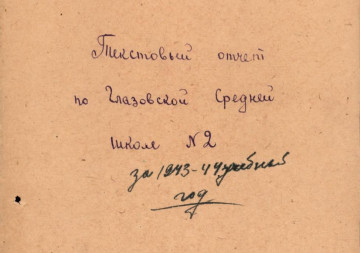 Текстовый отчет
по Глазовской Средней
школе №2
за 1943-44 учебный
год